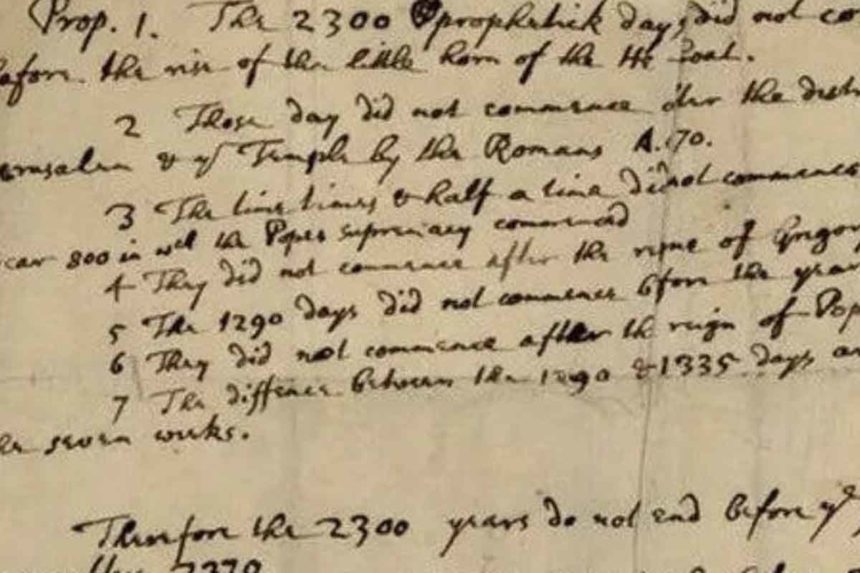 Prop. 1. The 2300 prophetick days did not co
before the rise of the little horn of the He Goat.
2 Those day did not commence after the destr
erusalem & ye Temple by the Romans A. 70.
3 The time times & half a time did not commence
year 800 in wch the Popes supremacy commenced
4 They did not commence after the reigne of Gregory
5 The 1290 days did not commence before the year
6 They did not commence after the reign of Pop
7 The diffence between the 1290 & 1335 days a
the seven weeks.
Therefore the 2300 years do not end before ye
2370